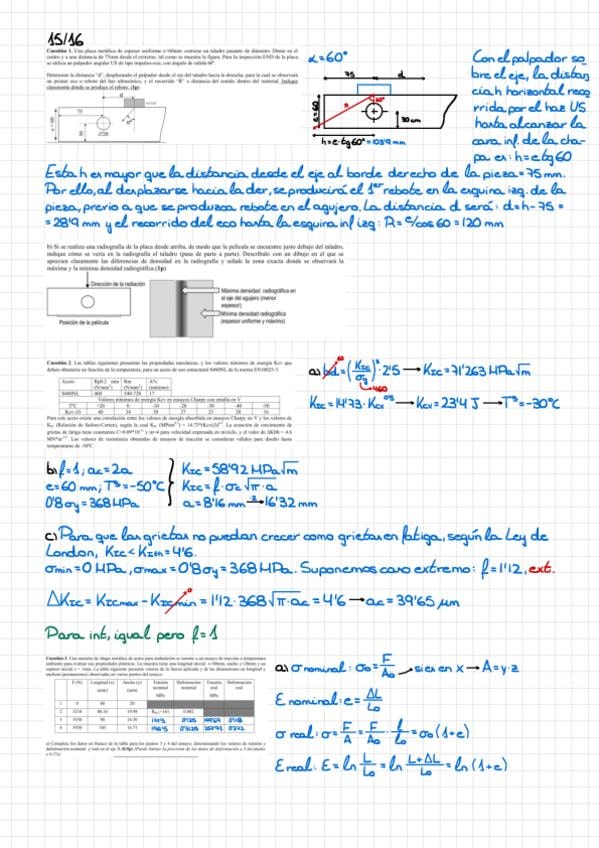 15/16
Cuestión 1. Una placa metálica de espesor uniforme e=60mm contiene un taladro pasante de diámetro 20mm en el
centro y a una distancia de 75mm desde el extremo, tal como se muestra la figura. Para la inspección END de la placa
se utiliza un palpador angular US de tipo impulso-eco, con ángulo de salida 60º.
Determine la distancia "d", desplazando el palpador desde el eje del taladro hacia la derecha, para la cual se observará
un primer eco o rebote del haz ultrasónico, y el recorrido "R" o distancia del sonido dentro del material. Indique
claramente dónde se produce el rebote. (1p)
d
75
e = 60
30
∅20
α=60°
75 d
60°
R
e=60
30 cm
h=e·tg60=103'9 mm
Con el palpador so
bre el eje, la distan
cia h horizontal reco
rrida por el haz US
hasta alcanzar la
cara inf. de la cha-
pa es: h=e·tg60
Esta h es mayor que la distancia desde el eje al borde derecho de la pieza=75 mm.
Por ello, al desplazarse hacia la der, se producirá el 1er rebote en la esquina izq. de la
pieza, previo a que se produzca rebote en el agujero. La distancia d será: d=h-75 =
=28'9 mm y el recorrido del eco hasta la esquina inf izq: R=e/cos 60=120 mm
b) Si se realiza una radiografía de la placa desde arriba, de modo que la película se encuentre justo debajo del taladro,
indique cómo se vería en la radiografía el taladro (pasa de parte a parte). Descríbalo con un dibujo en el que se
aprecien claramente las diferencias de densidad en la radiografía y señale la zona exacta donde se observará la
máxima y la mínima densidad radiográfica.(1p)
Dirección de la radiación
Posición de la película
Máxima densidad radiográfica en
el eje del agujero (menor
espesor)
Mínima densidad radiográfica
(espesor uniforme y máximo)
Cuestión 2. Las tablas siguientes presentan las propiedades mecánicas, y los valores mínimos de energía Kcv que
deben obtenerse en función de la temperatura, para un acero de uso estructural S460NL de la norma EN10025-3.
Acero Rp0.2 min (N/mm²) Rm (N/mm²) A% (mínimo)
S460NL 460 540-720 17
Valores mínimos de energía Kcv en ensayos Charpy con entalla en V
TªC +20 0 -10 -20 -30 -40 -50
Kcv (J) 40 34 30 27 23 20 16
Para este acero existe una correlación entre los valores de energía absorbida en ensayos Charpy en V y los valores de
K_IC (Relación de Sailors-Corten), según la cual K_IC (MPa·m^1/2) = 14.73*(Kcv(J))^0.5. La ecuación de crecimiento de
MN*m^-3/2. Los valores de resistencia obtenidos de ensayos de tracción se consideran válidos para diseño hasta
temperaturas de -50ºC.
a) = (K_IC/σy)²·2'5 → K_IC=71'263 MPa√m
→460
K_IC=14'73·K_CV^0'5 → K_CV=23'4 J → Tª=-30°C
b) f=1; ac=2a
e=60 mm; Tª=-50°C
0'8σy=368 MPa
K_IC=58'92 MPa√m
K_IC=f·σc√π·a
a=8'16 mm → 16'32 mm
c) Para que las grietas no puedan crecer como grietas en fatiga, según la Ley de
London, K_IC<K_Ith=4'6.
σmin=0 MPa, σmax=0'8σy=368 MPa. Suponemos caso extremo: f=1'12, ext.
ΔK_IC=K_ICmax-K_ICmin=1'12·368√π·ac=4'6 → ac=39'65 μm
Para int, igual pero f=1
Cuestión 3. Una muestra de chapa metálica de acero para embutición se somete a un ensayo de tracción a temperatura
F (N) Longitud (x) (mm) Ancho (y) (mm) Tensión nominal MPa Deformación nominal Tensión real MPa Deformación real
1 0 80 20
4 3930 105
a) Complete los datos en blanco de la tabla para los puntos 3 y 4 del ensayo, determinando los valores de tensión y
a) σ nominal: σ₀=F/A₀ → si es en x → A=y·z
E nominal: e=ΔL/L₀
σ real: σ=F/A=F/A₀·l/l₀=σ₀(1+e)
E real: ε=ln L/L₀=ln (L+ΔL)/L₀=ln(1+e)